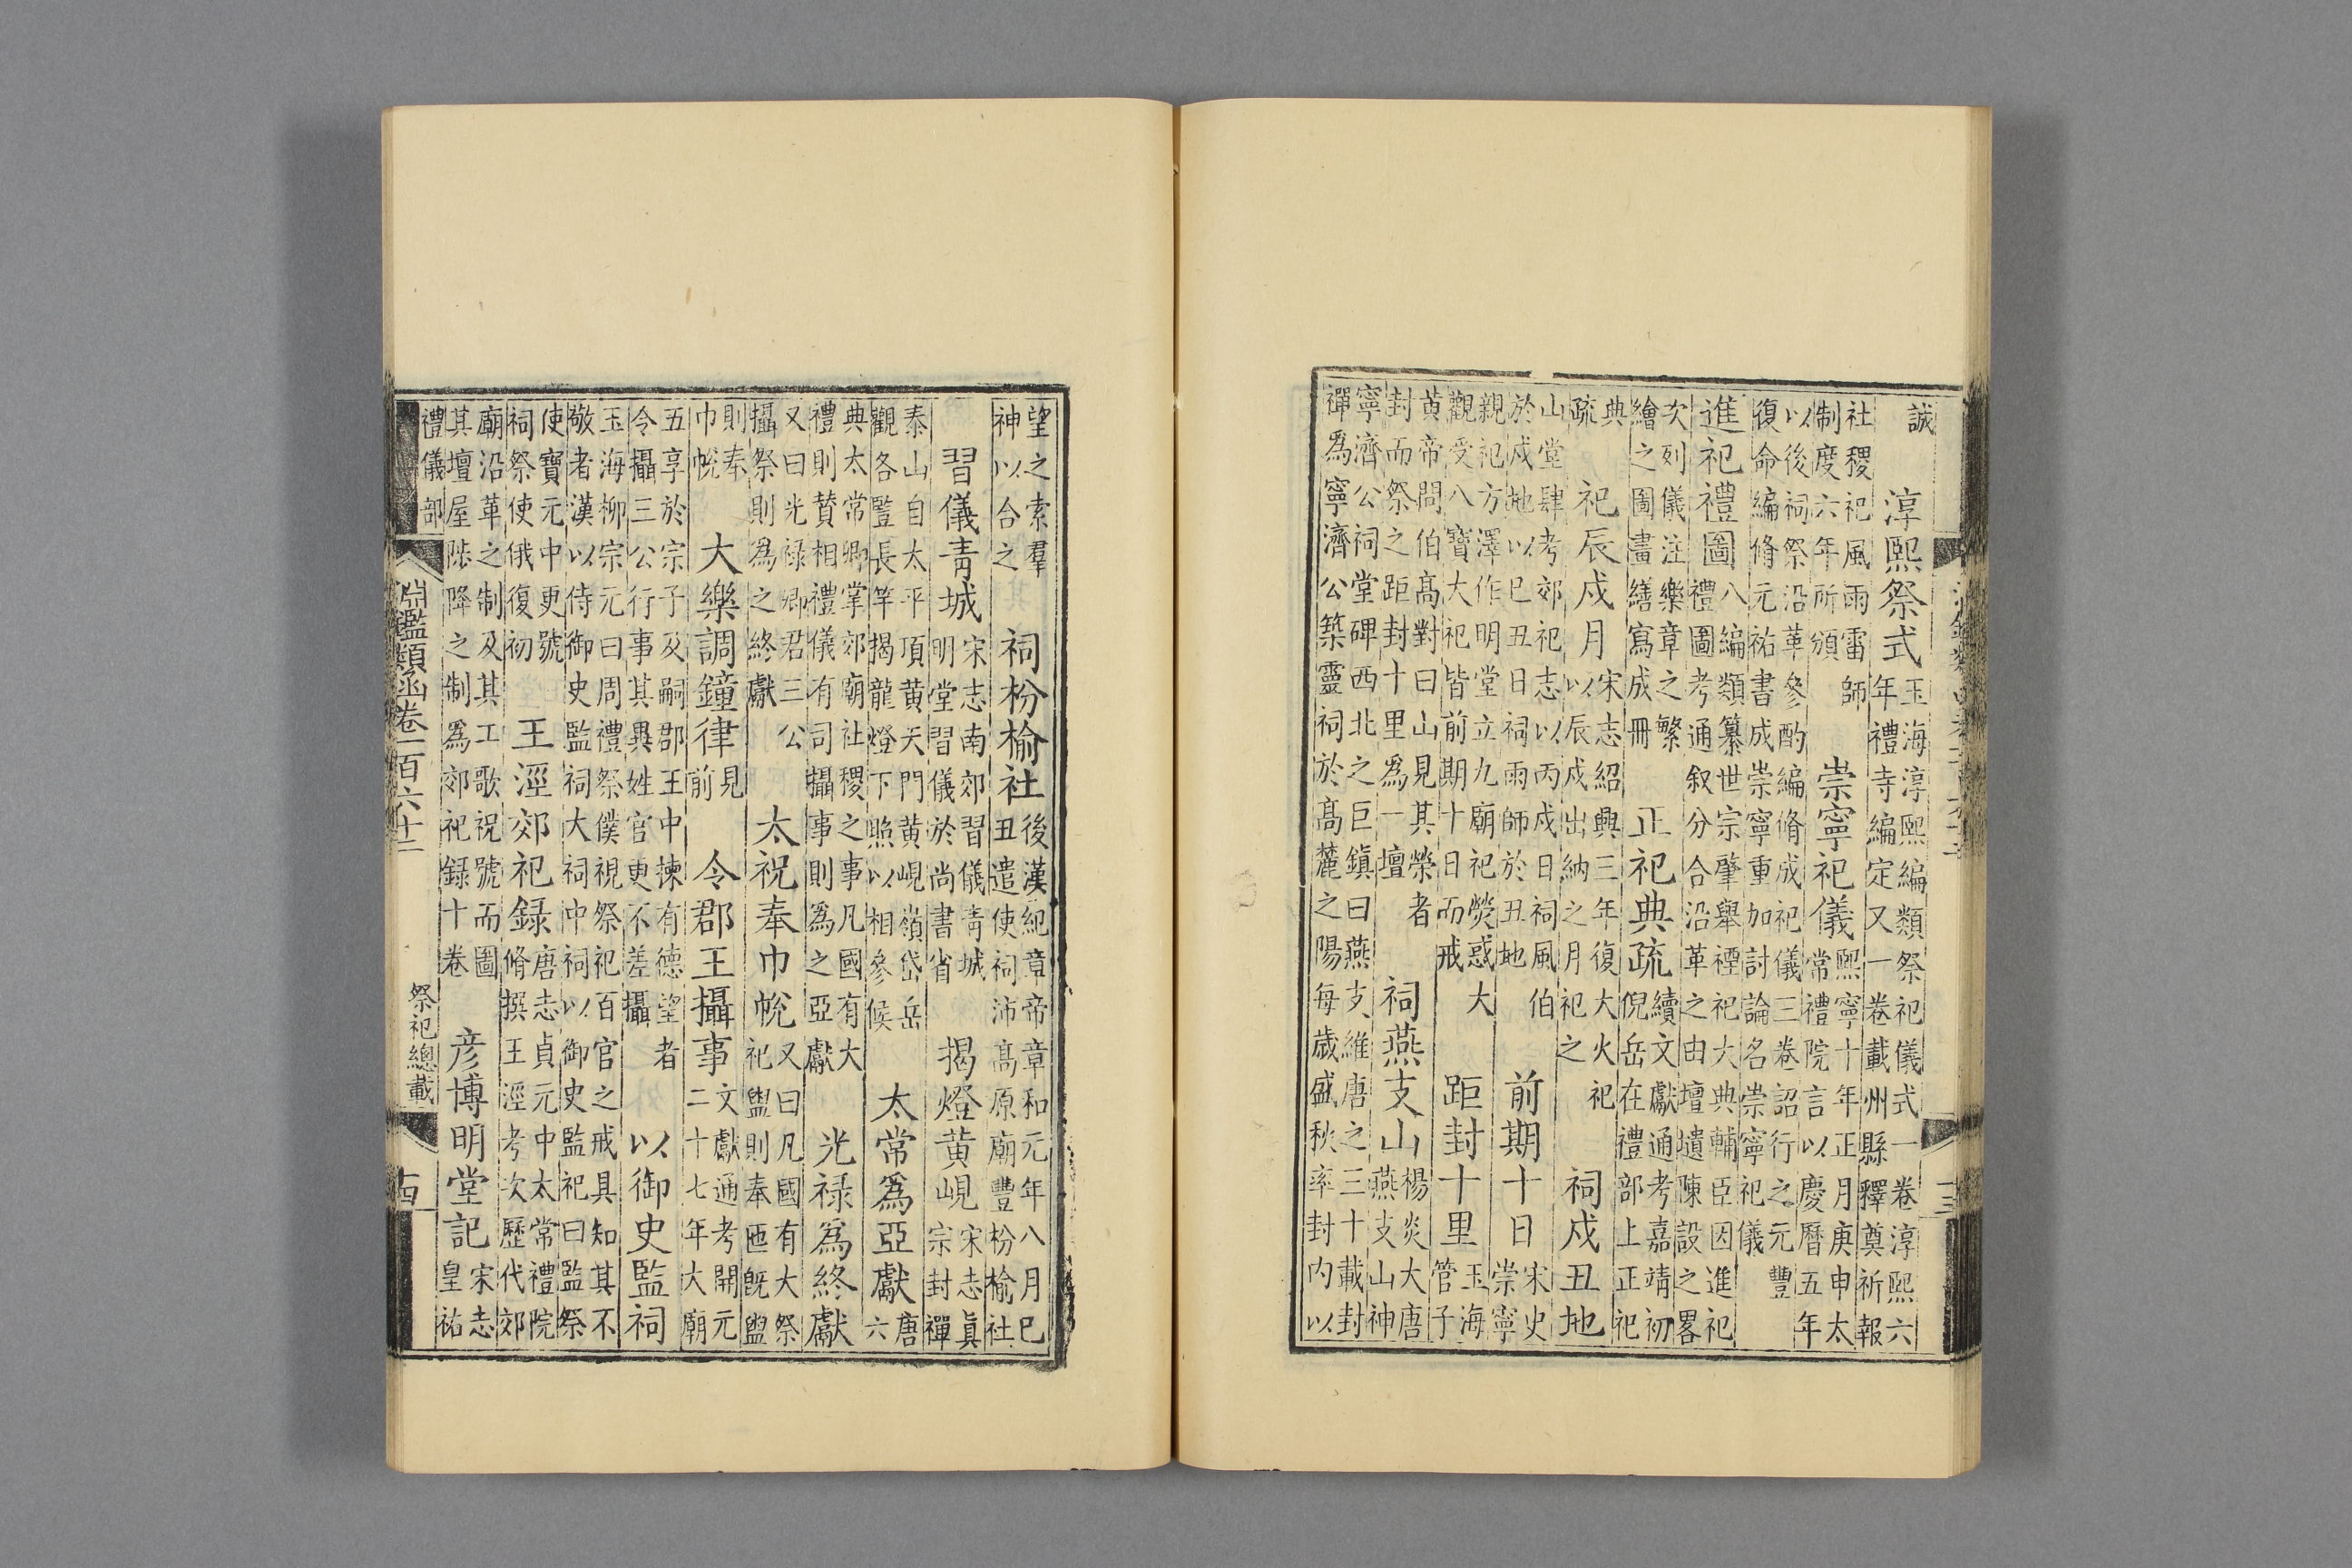 誠　淳熙祭式　玉海淳熙編類祭祀儀式一卷淳熙六年禮寺編定又一卷載州縣釋奠祈報
社稷祀風雨雷師制度六年所頒　崇寧祀儀　熙寧十年正月庚申太常禮院言以慶曆五年
以後祠祭沿革參酌編脩成祀儀三卷詔行之元豐復命編脩元祐書成崇寧重加討論名崇寧祀儀
進祀禮圖　八編類纂世宗肇舉禋祀大典輔臣因進祀禮圖考通叙分合沿革之由壇壝陳設之畧
次列儀注樂章之繁繪之圖畫繕寫成冊　正祀典疏　續文獻通考嘉靖初倪岳在禮部上正祀
典疏　祀辰戌月　宋志紹興三年復大火祀以辰戌出納之月祀之　祠戌丑地
山堂肆考郊祀志以丙戌日祠風伯於戌地以巳丑日祠雨師於丑地　前期十日　宋史崇寧
親祀方澤作明堂立九廟祀熒惑大觀受八寶大祀皆前期十日而戒　距封十里　玉海管子
黄帝問伯髙對曰山見其榮者封而祭之距封十里爲一壇　祠燕支山　楊炎大唐燕支山神
寧濟公祠堂碑西北之巨鎮曰燕支維唐之三十載封禪爲寧濟公築靈祠於髙麓之陽每歲盛秋率封内以
望之索羣神以合之　祠枌榆社　後漢紀章帝章和元年八月巳丑遣使祠沛髙原廟豐枌榆社
習儀青城　宋志南郊習儀青城明堂習儀於尚書省　揭燈黄峴　宋志真宗封禪
泰山自太平項黄天門黄峴嶺岱岳觀各監長竿揭龍燈下照以相參候　太常爲亞獻　唐六
典太常卿掌郊廟社稷之事凡國有大禮則賛相禮儀有司攝事則爲之亞獻　光禄爲終獻
又曰光禄卿君三公攝祭則爲之終獻　太祝奉巾帨　又曰凡國有大祭祀盥則奉匜旣盥
則奉巾帨　大樂調鐘律　見前　令郡王攝事　文獻通考開元二十七年大廟
五享於宗子及嗣郡王中揀有德望者令攝三公行事其異姓官更不差攝　以御史監祠
玉海柳宗元曰周禮祭僕視祭祀百官之戒具知其不敬者漢以侍御史監祠大祠中祠以御史監祀曰監祭
使寶元中更號祠祭使俄復初　王涇郊祀録　唐志貞元中太常禮院脩撰王涇考次歷代郊
廟沿革之制及其工歌祝號而圖其壇屋陟降之制爲郊祀録十卷　彦博明堂記　宋志皇祐
禮儀部　淵鑑類函卷一百六十二　祭祀總載　十四